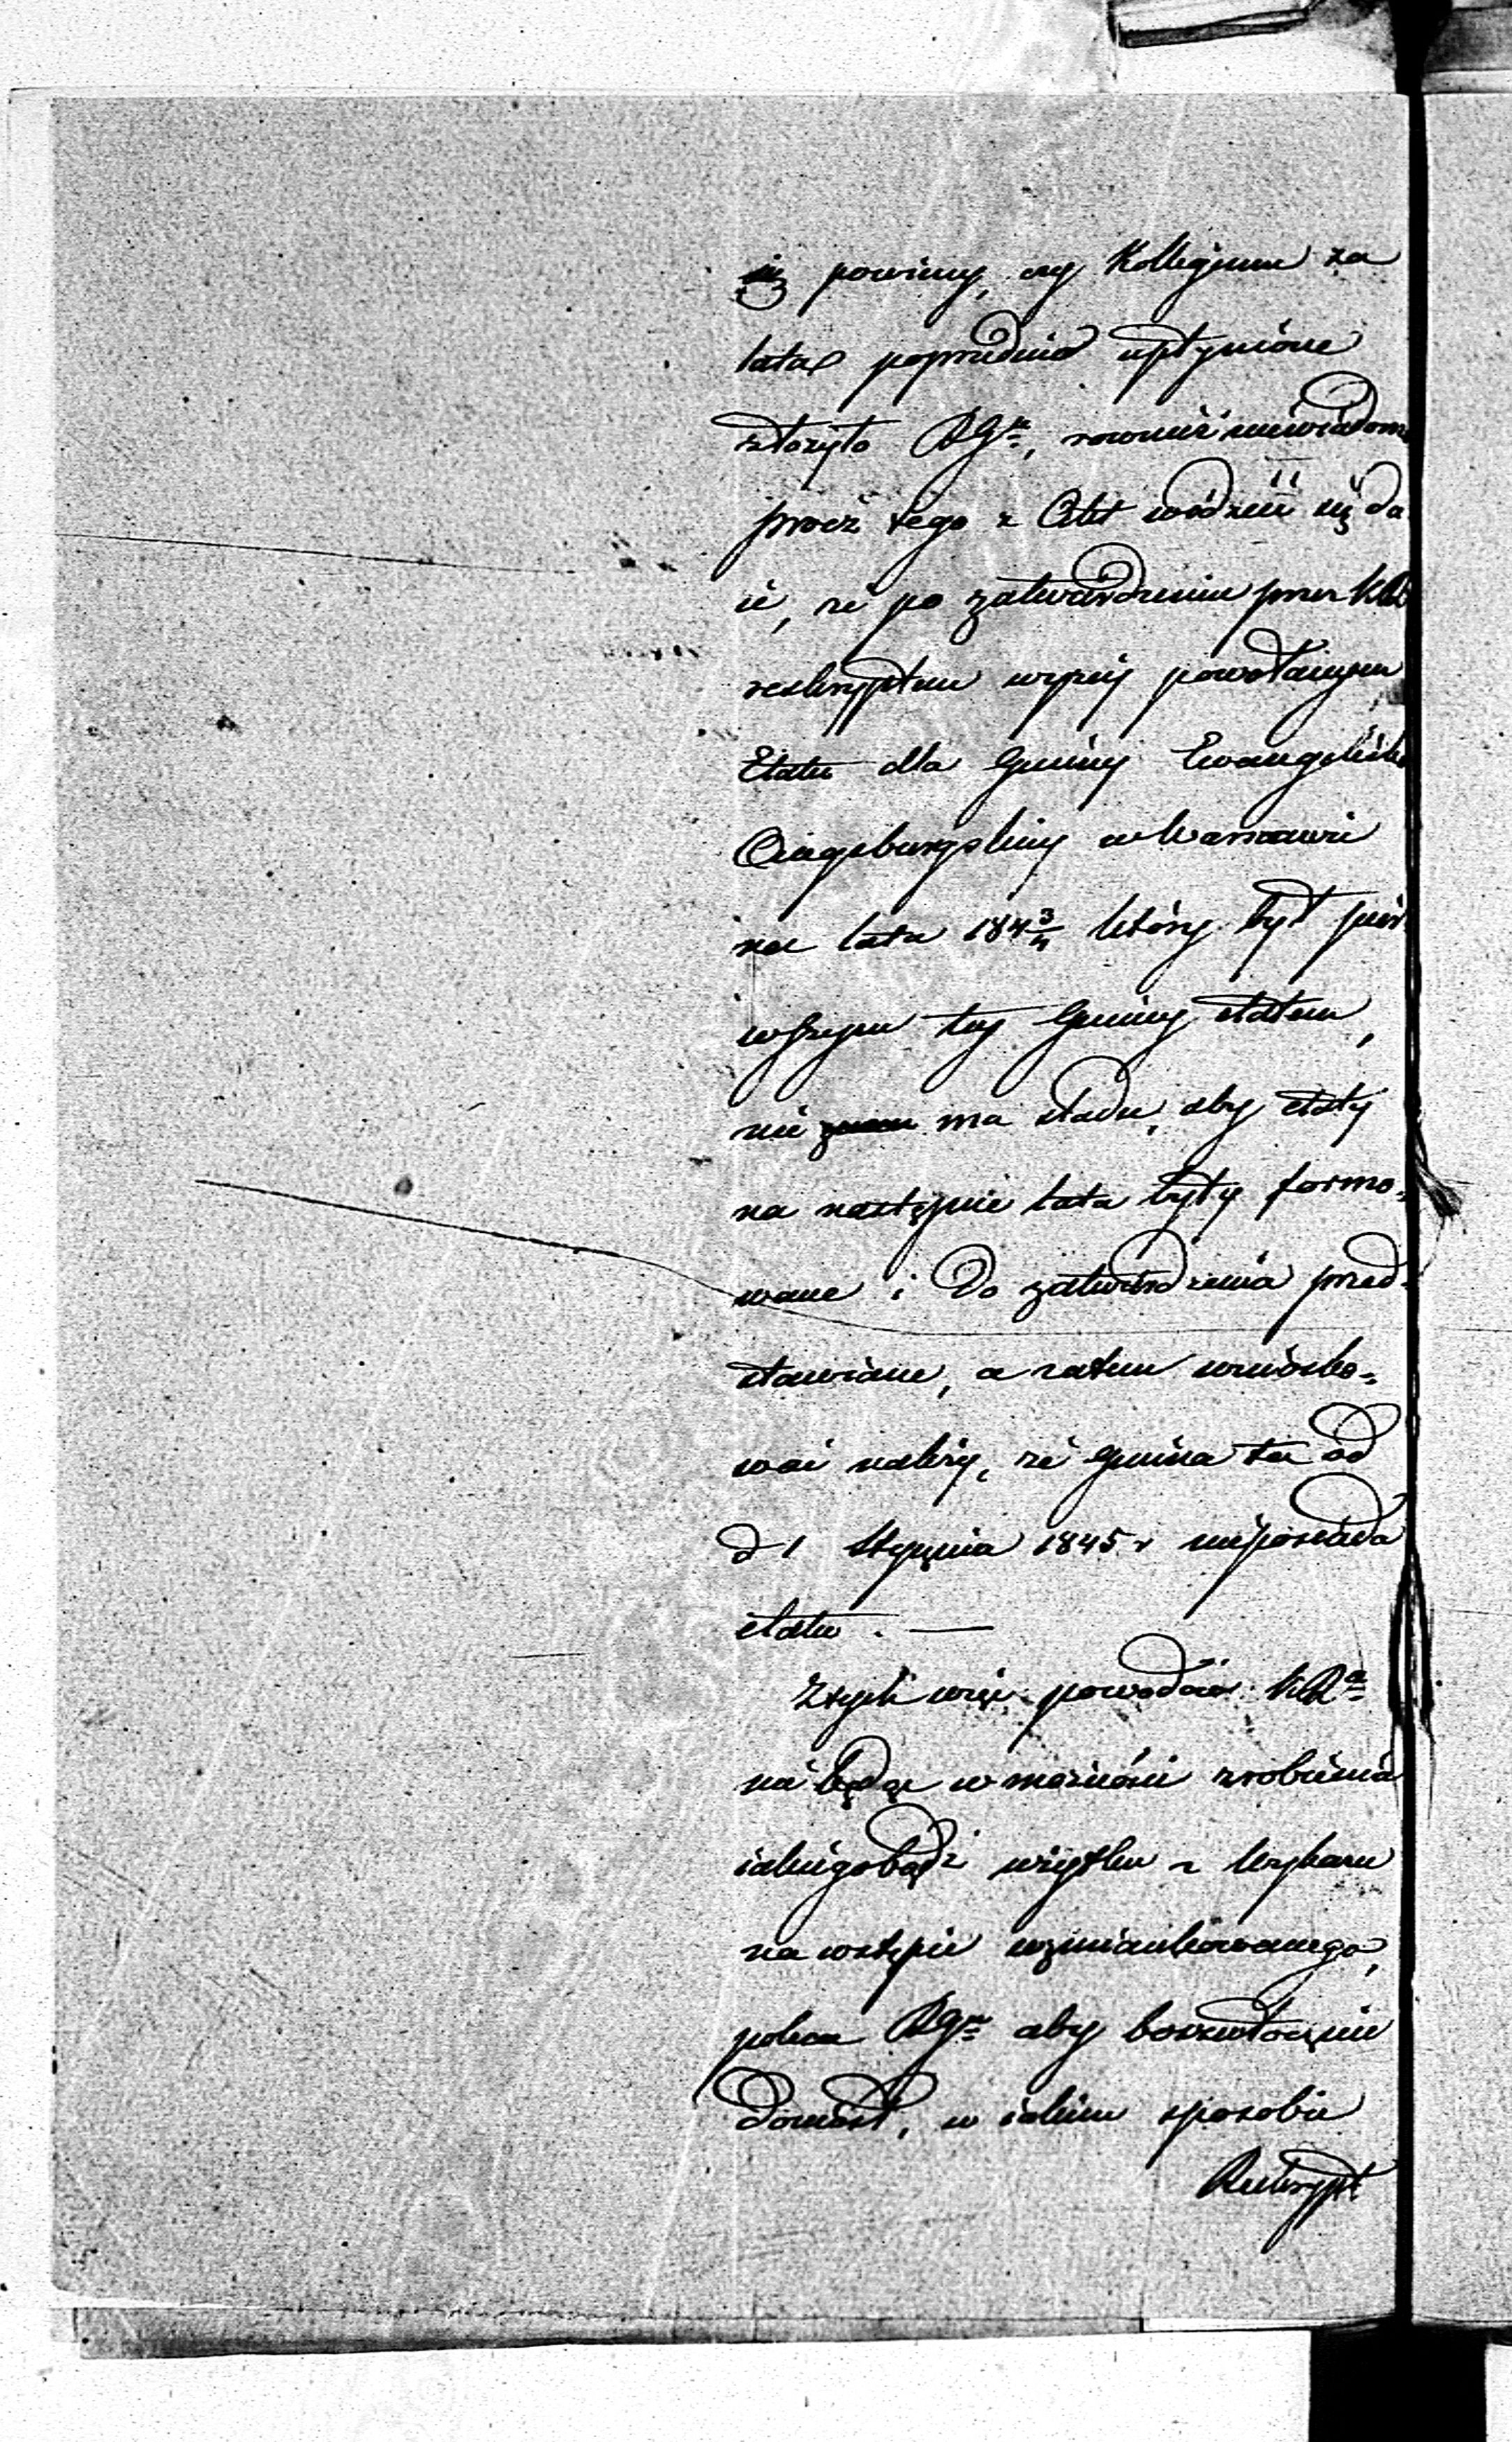 się powinny, czy Kollegium za
lata poprzednio upłynione
złożyło RGu, rownież niewiadomo
prócz tego z Akt widzieć się da
ie, że po zatwierdzeniu przez KR
reskryptem wyżej powołanym
Etatu dla Gminy Ewangelick
Augsburgskiej w Warszawie
na lata 184 3/4 który był pier
wszym tej Gminy etatem,
nie ma śladu, aby etaty
na następne lata były formo-
wane i do zatwierdzenia przed-
stawiane, a zatem wniosko-
wać należy, że Gmina ta od
d 1 Stycznia 1845 r nieposiada
etatu. —
Z tych więc powodów KRa
nie będąc w możności zrobienia
iakiegobądź użytku z Wykazu
na wstępie wzmiankowanego,
poleca RGu aby bezzwłocznie
doniósł, w iakim sposobie
Reskrypt